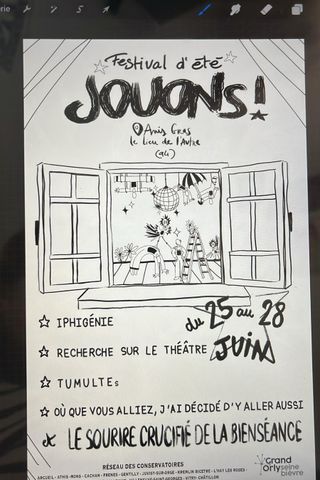 Festival d'été
JOUONS!
Anis Gras
le lieu de l'Autre
(94)
du 25 au 28
JUIN
IPHIGÉNIE
RECHERCHE SUR LE THÉÂTRE
TUMULTEs
OÙ QUE VOUS ALLIEZ, J'AI DÉCIDÉ D'Y ALLER AUSSI
LE SOURIRE CRUCIFIÉ DE LA BIENSÉANCE
RÉSEAU DES CONSERVATOIRES
ARCUEIL - ATHIS-MONS - CACHAN - FRESNES - GENTILLY - JUVISY-SUR-ORGE - KREMLIN BICÊTRE - L'HAŸ LES ROSES -
VILLENEUVE-SAINT-GEORGES - VITRY- CHÂTILLON
Grand
Orly seine
bièvre